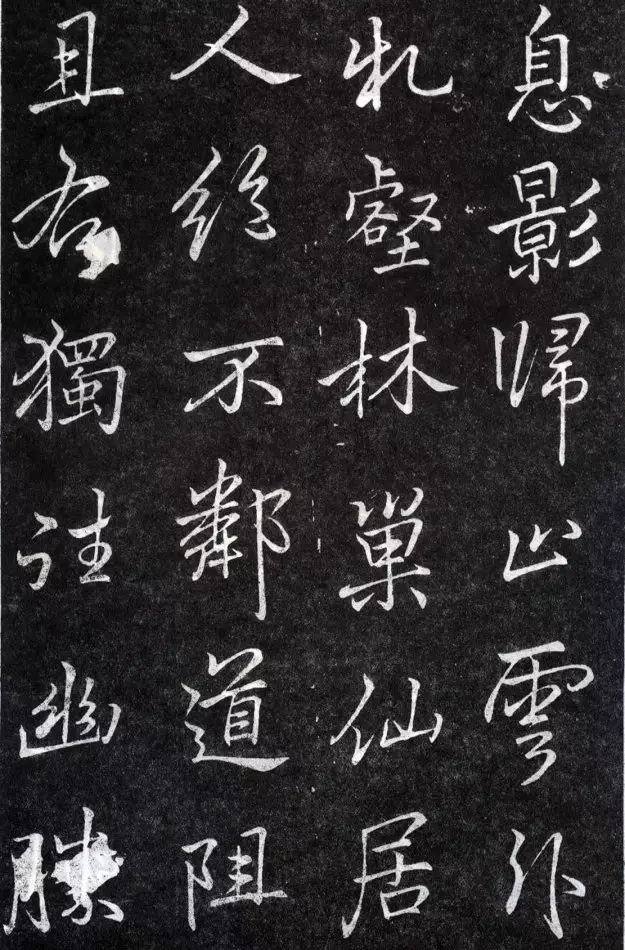 息影歸山雲外
壑林巢仙居
人絶不鄰道阻
且右獨往幽勝